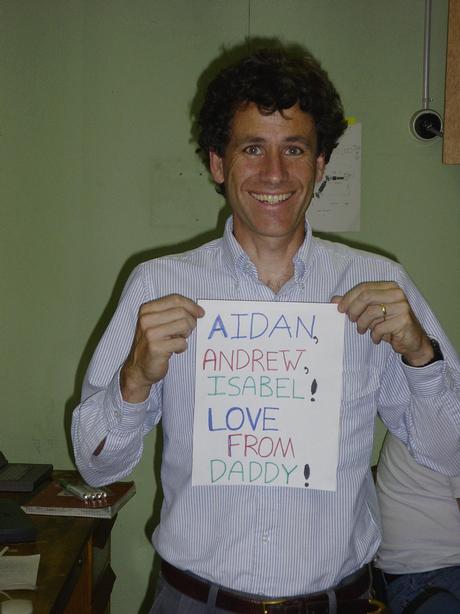 AIDAN,
ANDREW,
ISABEL!
LOVE
FROM
DADDY!